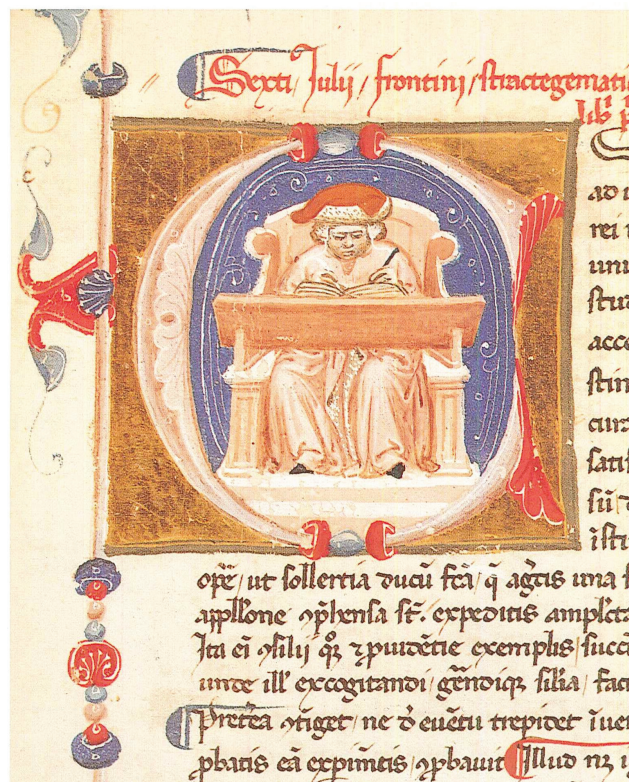 Sexti Julii frontini stractegemati
lib p
ad i
rei
uni
stud
acce
stin
curz
satis
sũ
isti
opē, ut sollertia ducũ fcã, q̃ agc̃is una f
appllõne ꝯp̃hensa st̃. expeditis amplcta
Ita eĩ ꝯsilij qꝫ ⁊ puidẽtie exemplis succ
unde ill' excogitandi gẽndiqꝫ silia, faci
Pret̃ea ꝯtiget, ne ꝺ euẽtu trepidet iuen
ꝓbatis eã expim̃tis, ꝯpbauit Illud nꝫ i